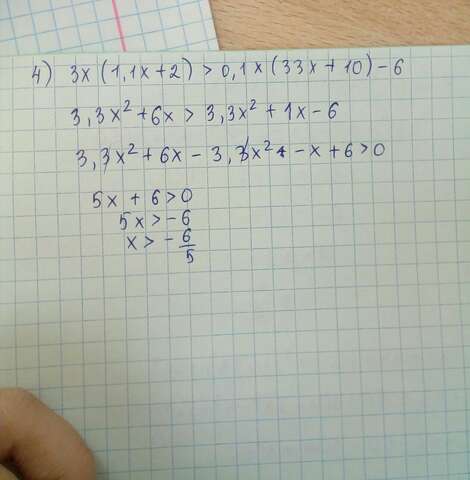 4) 3x (1,1x+2) > 0,1x (33x + 10) - 6
3,3x² + 6x > 3,3x² + 1x - 6
3,3x² + 6x - 3,3x² - x + 6 > 0
5x + 6 > 0
5x > - 6
x > - 6/5